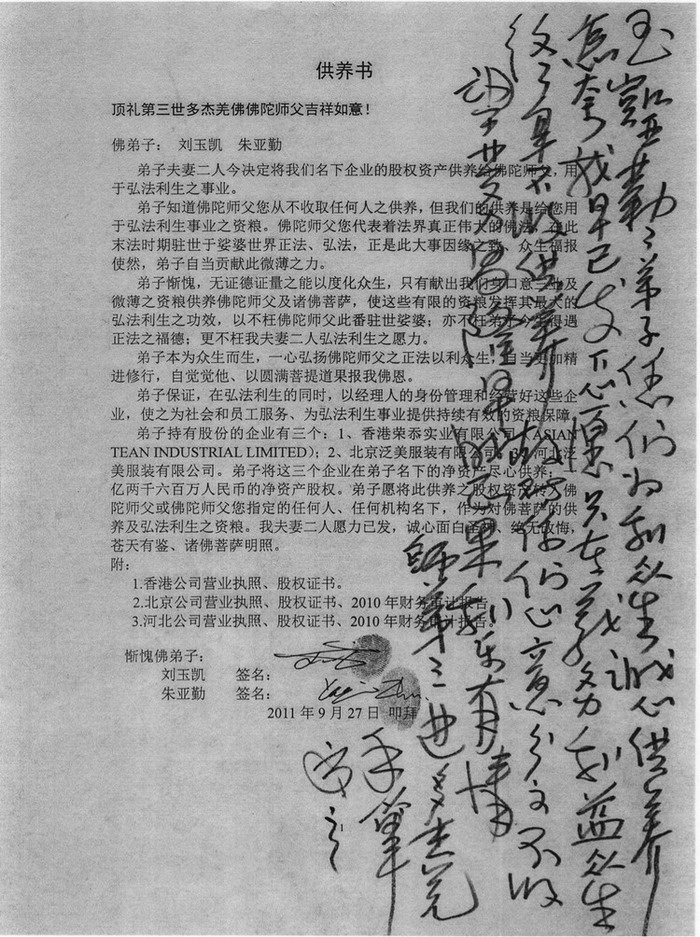 供养书
顶礼第三世多杰羌佛佛陀师父吉祥如意！
佛弟子： 刘玉凯 朱亚勤
弟子夫妻二人今决定将我们名下企业的股权资产供养给佛陀师父，用
于弘法利生之事业。
弟子知道佛陀师父您从不收取任何人之供养，但我们的供养是给您用
于弘法利生事业之资粮。佛陀师父您代表着法界真正伟大的佛法，在此
末法时期驻世于娑婆世界正法、弘法，正是此大事因缘之致、众生福报
使然，弟子自当贡献此微薄之力。
弟子惭愧，无证德证量之能以度化众生，只有献出我们身口意三业及
微薄之资粮供养佛陀师父及诸佛菩萨，使这些有限的资粮发挥其最大的
弘法利生之功效，以不枉佛陀师父此番驻世娑婆；亦不枉弟子今生得遇
正法之福德；更不枉我夫妻二人弘法利生之愿力。
弟子本为众生而生，一心弘扬佛陀师父之正法以利众生，自当更加精
进修行，自觉觉他、以圆满菩提道果报我佛恩。
弟子保证，在弘法利生的同时，以经理人的身份管理和经营好这些企
业，使之为社会和员工服务、为弘法利生事业提供持续有效的资粮保障。
弟子持有股份的企业有三个：1、香港荣忝实业有限公司（ASIAN
TEAN INDUSTRIAL LIMITED）；2、北京泛美服装有限公司；3、河北泛
美服装有限公司。弟子将这三个企业在弟子名下的净资产尽心供养：
亿两千六百万人民币的净资产股权。弟子愿将此供养之股权资产转入佛
陀师父或佛陀师父您指定的任何人、任何机构名下，作为对佛菩萨的供
养及弘法利生之资粮。我夫妻二人愿力已发，诚心面白圣师，绝无改悔，
苍天有鉴、诸佛菩萨明照。
附：
1.香港公司营业执照、股权证书。
2.北京公司营业执照、股权证书、2010 年财务审计报告。
3.河北公司营业执照、股权证书、2010 年财务审计报告。
惭愧佛弟子：
刘玉凯 签名：
朱亚勤 签名： Yaqin Zhu
2011 年 9 月 27 日 叩拜
玉凯亚勤二弟子您们为利众生诚心供养
我早已发下心愿只在义务利益众生
不收供养 你们心意分文不收
早成正果利乐有情
第三世多杰羌
手笔